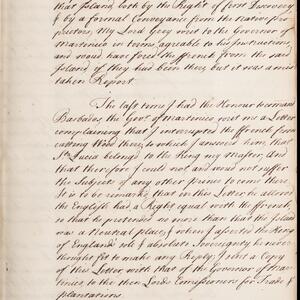 that Island both by the Right of first Discovery
& by a formal Conveyance from the native pro-
prietors, My Lord Grey sent to the Governor of
Martinico in terms agreable to his Instructions,
and would have forced the French from the said
Island if they had been there, but it was a mis-
taken Report.
The last time I had the Honour to command
Barbados, the Govr. of Martinico sent me a Letter
complaining that I interrupted the French from
cutting Wood there, to which I answered him that
Sta. Lucia belongs to the King my Master, And
that therefore I could not and woud not suffer
the Subjects of any other prince to come there.
It is to be remarkt that in this Letter he allows
the English had a Right equal with the French,
so that he pretended no more than that the Island
was a Neutral place, & when I asserted the King
of England's sole & absolute Sovereignty he never
thought fit to make any Reply; I sent a Copy
of this Letter with that of the Governor of Mar-
tinico, to the then Lords Comissioners for Trade &
plantations